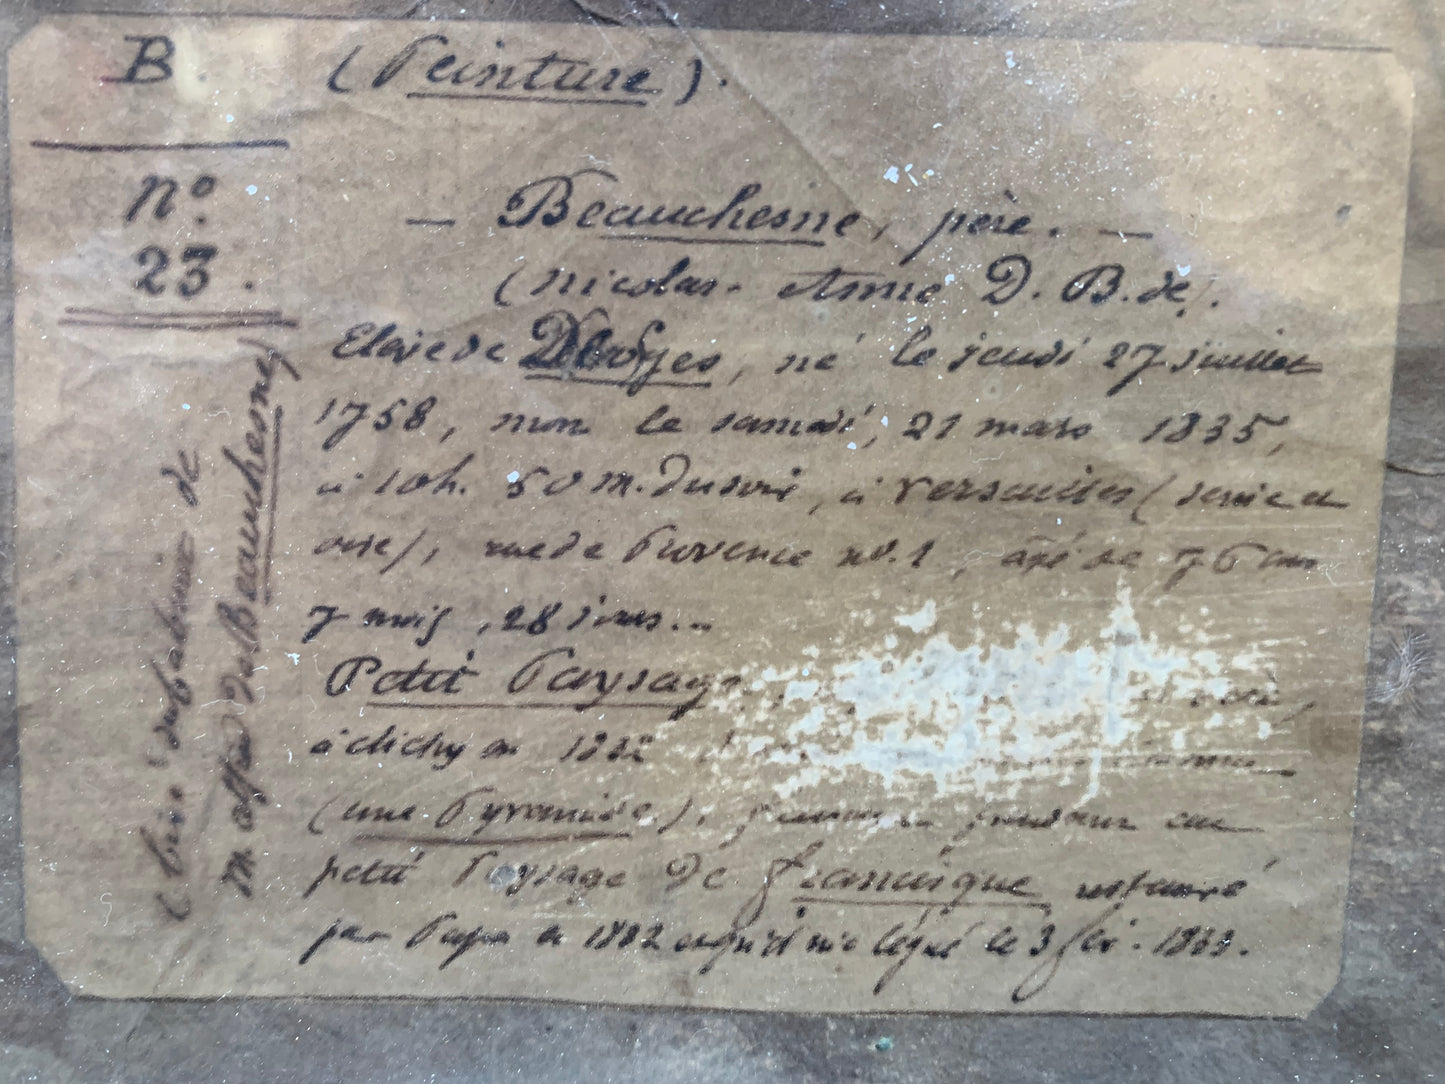 B. (Peinture).
n°. 23.
— Beauchesne, père. —
(nicolas. Anne D. B. de).
Elève de Debofges, né le jeudi 27 juillet
1758, mort le samedi, 21 mars 1835,
à 10h. 50 m. du soir, à Versailles (seine et
oise), rue de Provence no. 1, âgé de 76 ans
7 mois, 28 jours...
Petit Paysage
à clichy en 1832
(une Pyramide). pendant au
petit Paysage de francisque restauré
par Papa en 1802 et qu'il m'a légué le 3 fev. 1833.
du cabinet de
m. alfred de Beauchesne)